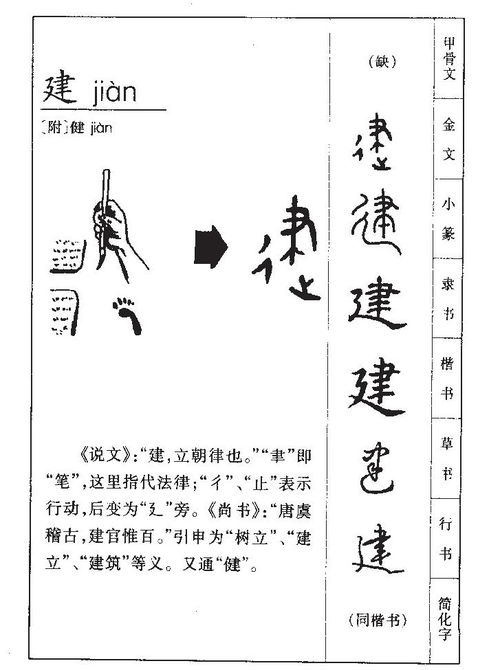 建 jiàn
〔附〕健 jiàn
《说文》:“建,立朝律也。”“聿”即
“笔”,这里指代法律;“彳”、“止”表示
行动,后变为“廴”旁。《尚书》:“唐虞
稽古,建官惟百。”引申为“树立”、“建
立”、“建筑”等义。又通“健”。
(缺)
甲骨文
建
金文
建
小篆
建
隶书
建
楷书
建
草书
建
行书
(同楷书)
简化字